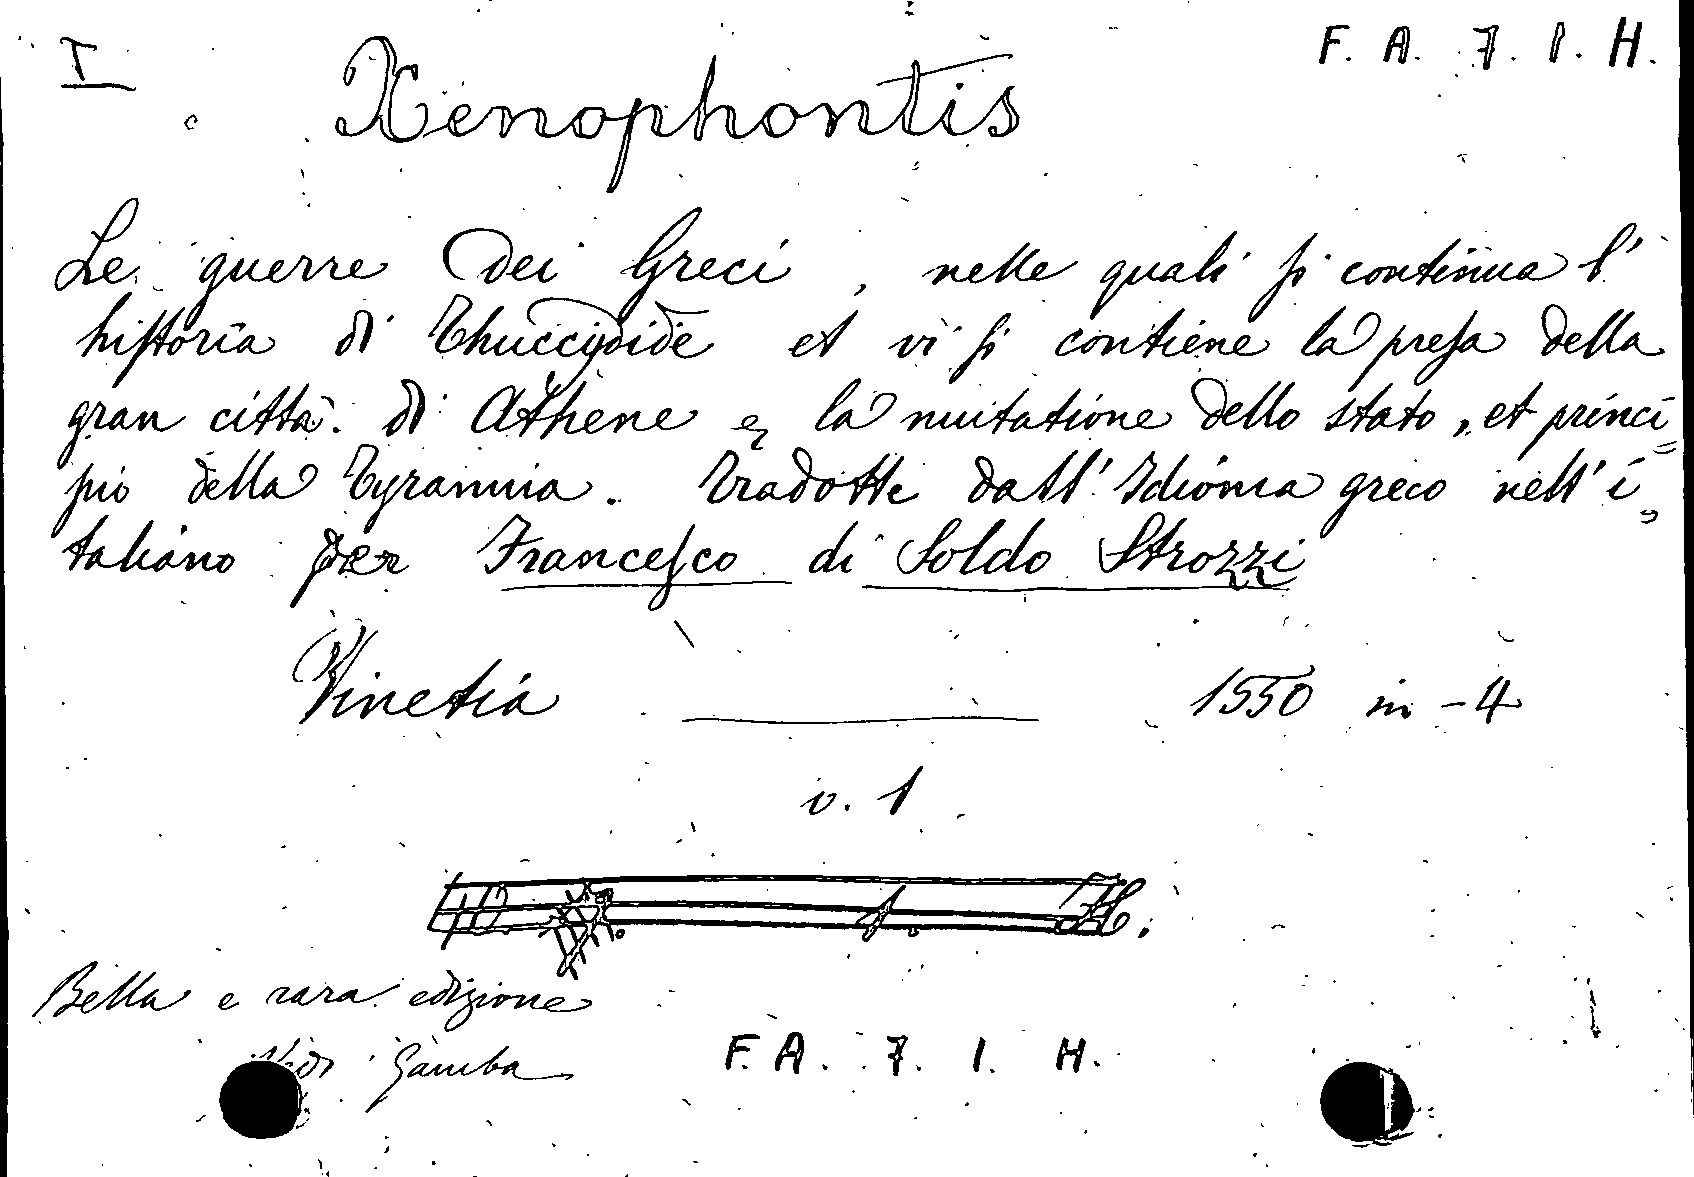 I
F. A. 7. 1. H.
Xenophontis
Le guerre dei Greci, nelle quali si continua l'
historia di Thuccydide et vi si contiene la presa della
gran città di Athene e la mutatione dello stato, et princi=
pio della Tyrannia. Tradotte dall'Idioma greco nell'i,
taliano per Francesco di Soldo Strozzi
Vinetia ——— 1550 in-4
v. 1
1. H.
Bella e rara edizione
Vedi Gamba
F. A. 7. 1. H.